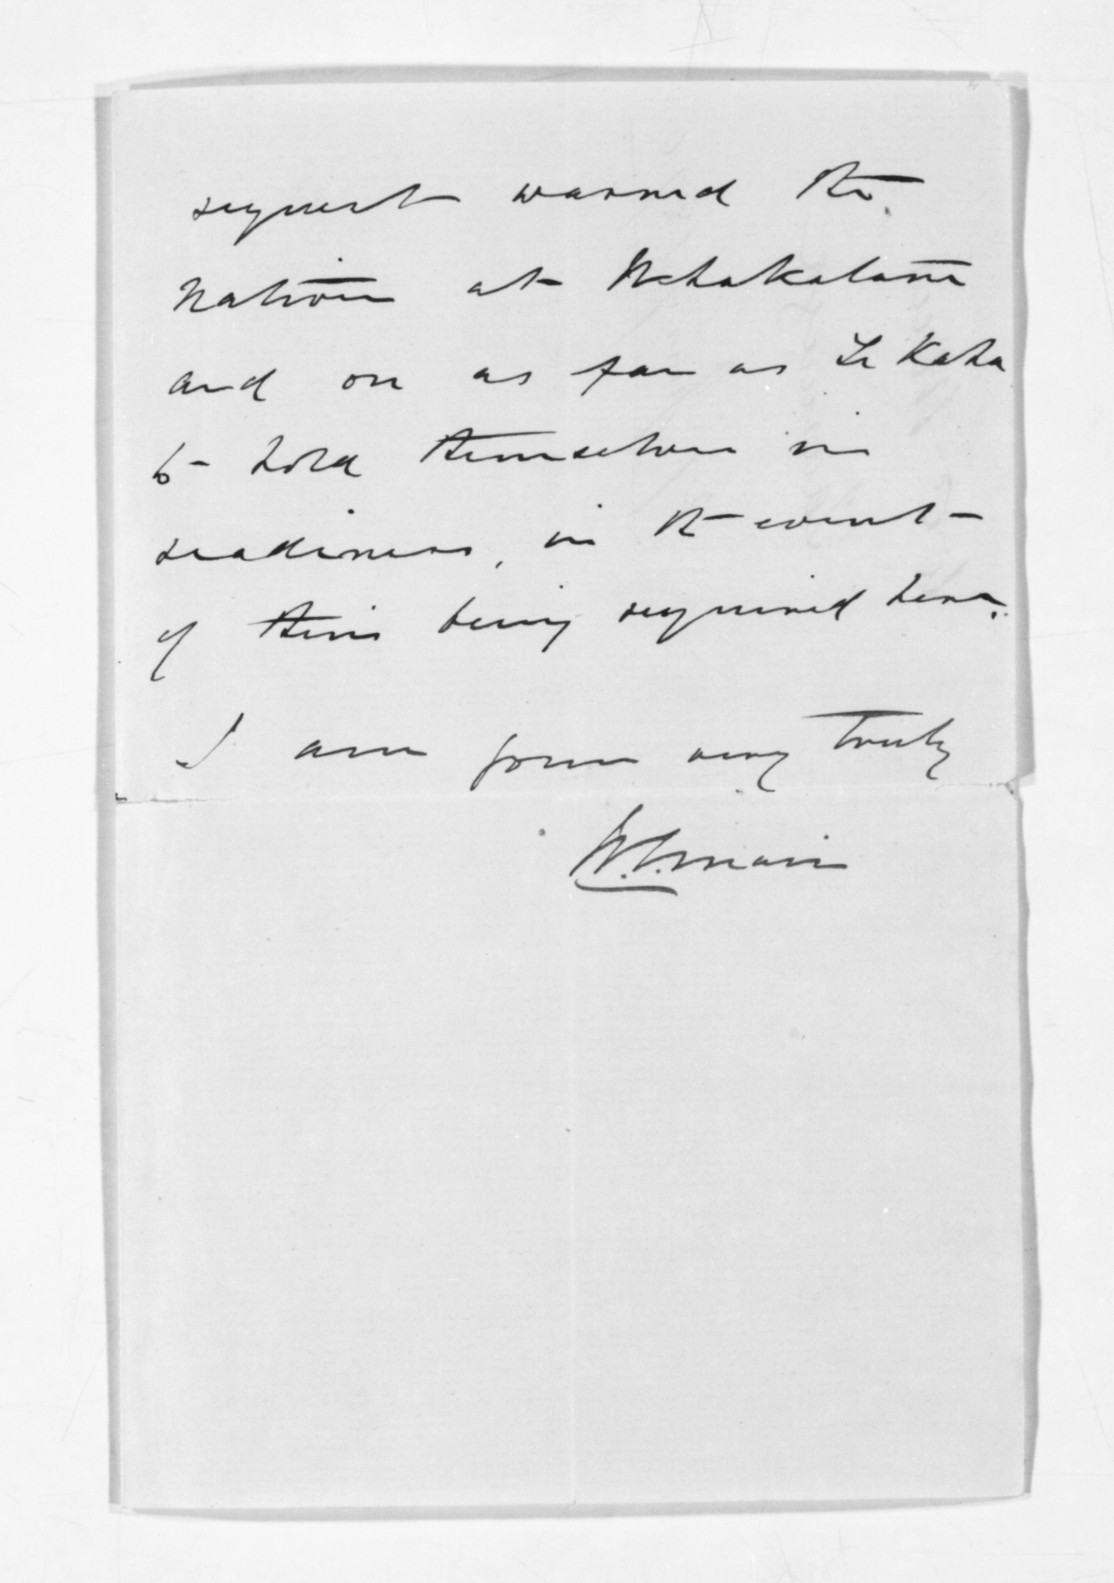 request warned the
Natives at Whakatane
and on as far as Te Kaha
to hold themselves in
readiness, in the event
of their being required here.
I am yours very truly
W. G. Mair